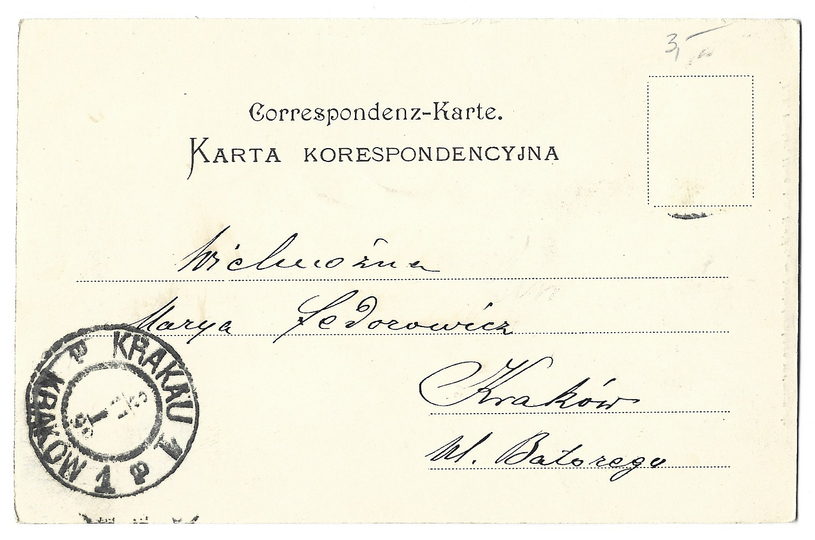 3,–
Correspondenz-Karte.
KARTA KORESPONDENCYJNA
Wielmożna
Marya Fedorowicz
Kraków
ul. Batorego
KRAKAU 1
KRAKÓW 1